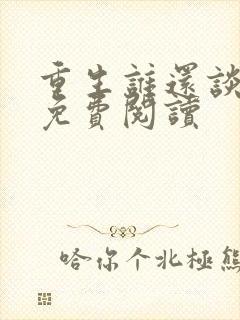 重生誰還談
免費閱讀
哈你个北極熊